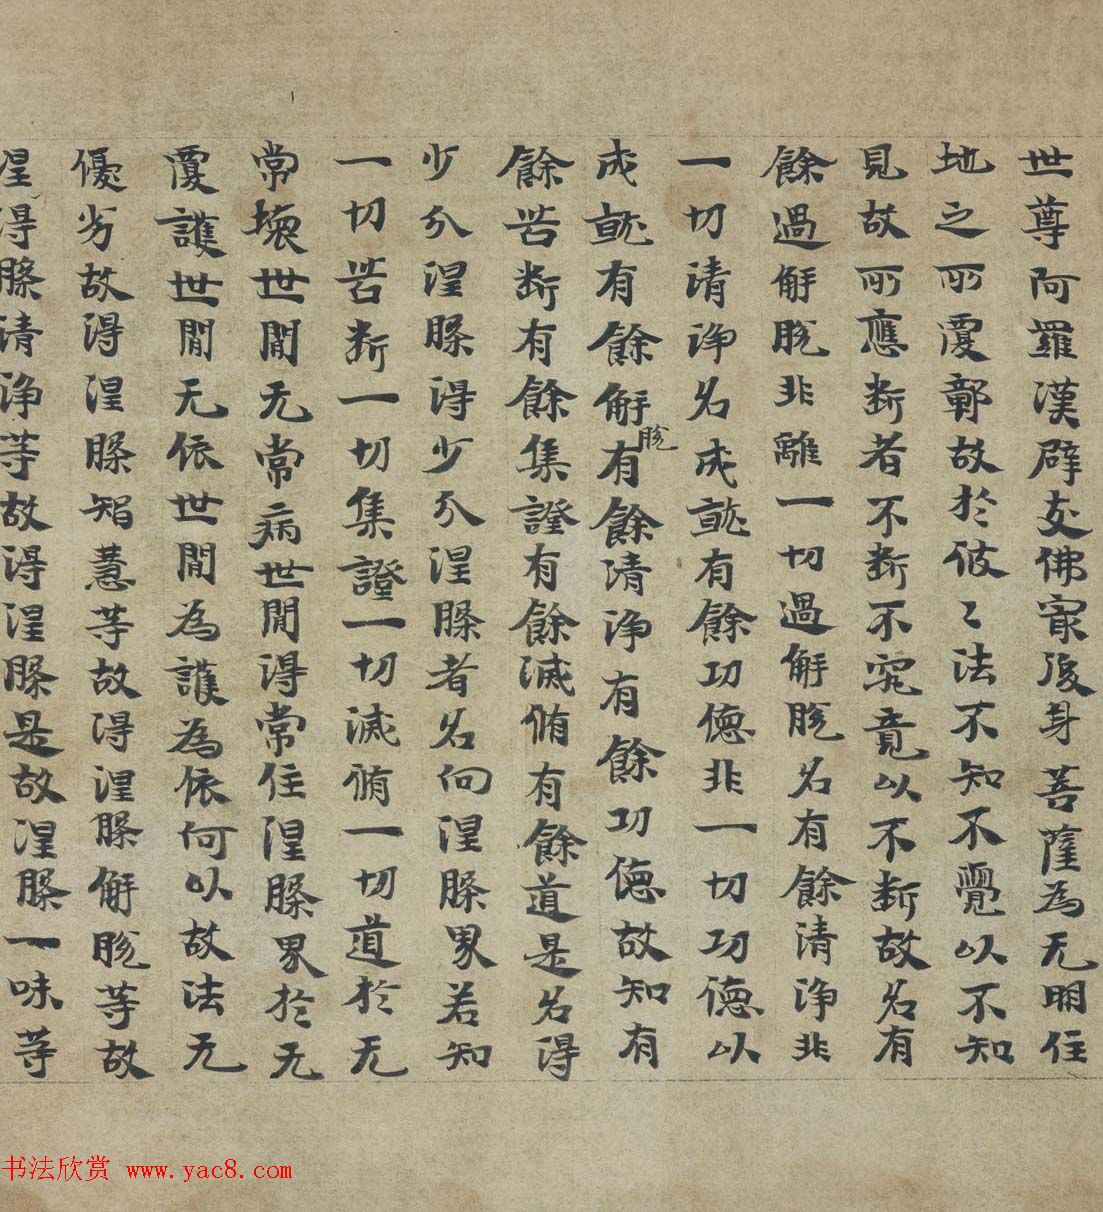 世尊阿羅漢辟支佛冣後身菩薩為无明住
地之所覆鄣故於彼〻法不知不覺以不知
見故所應断者不断不究竟以不断故名有
餘過解脫非離一切過解脫名有餘清淨非
一切清淨名成就有餘功德非一切功德以
成就有餘解脫有餘清淨有餘功德故知有
餘苦断有餘集證有餘滅脩有餘道是名得
少分涅槃得少分涅槃者名向涅槃界若知
一切苦断一切集證一切滅脩一切道於无
常壞世閒无常病世閒得常住涅槃界於无
覆護世閒无依世閒為護為依何以故法无
優劣故得涅槃智慧等故得涅槃解脫等故
涅得槃清淨等故得涅槃是故涅槃一味等
书法欣赏 www.yac8.com